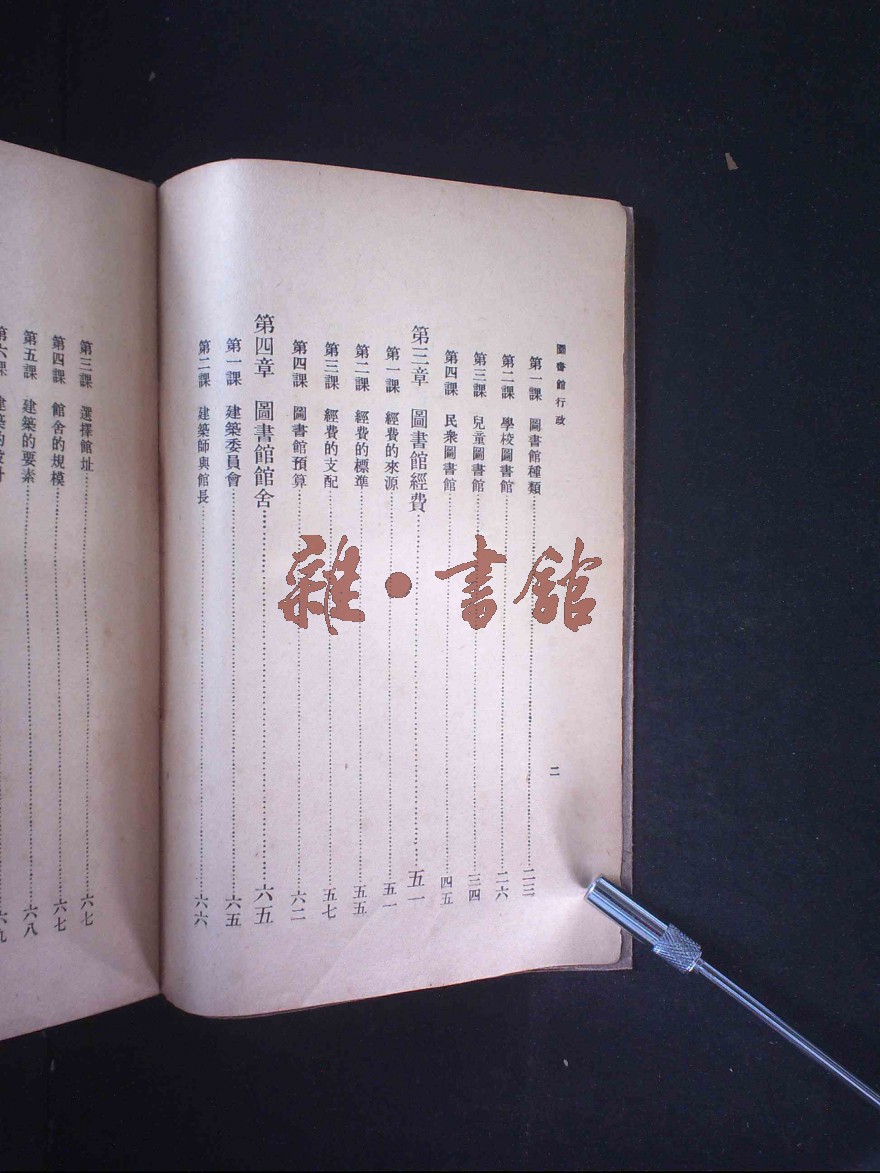 圖書館行政
二
第一課 圖書館種類……二三
第二課 學校圖書館……二六
第三課 兒童圖書館……三四
第四課 民衆圖書館……四五
第三章 圖書館經費……五一
第一課 經費的來源……五一
第二課 經費的標準……五五
第三課 經費的支配……五七
第四課 圖書館預算……六二
第四章 圖書館館舍……六五
第一課 建築委員會……六五
第二課 建築師與館長……六六
第三課 選擇館址……六七
第四課 館舍的規模……六七
第五課 建築的要素……六八
第六課 建築的設計……六九
雜·書館